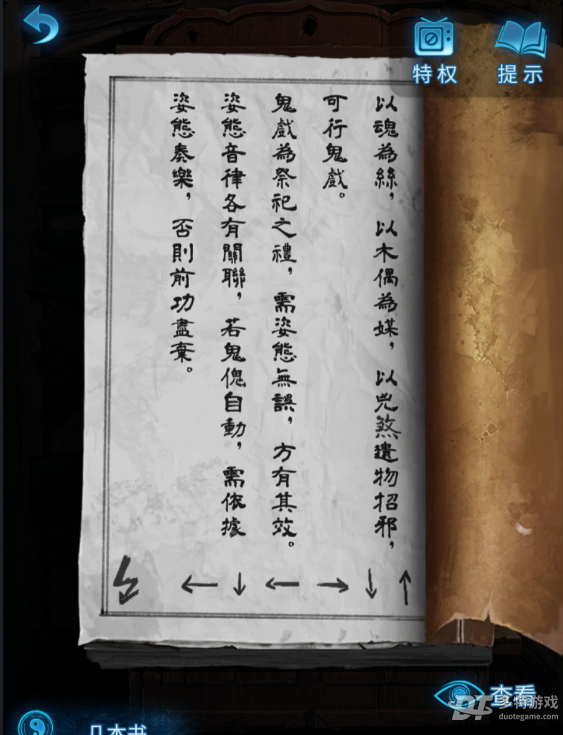 特权
提示
以魂為絲，以木偶為媒，以兇煞遺物招邪，
可行鬼戲。
鬼戲為祭祀之禮，需姿態無誤，方有其效。
姿態音律各有關聯，若鬼傀自動，需依據
姿態奏樂，否則前功盡棄。
← ↓ ← → ↓ ↑
查看
多特游戏
duotegame.com
几本书